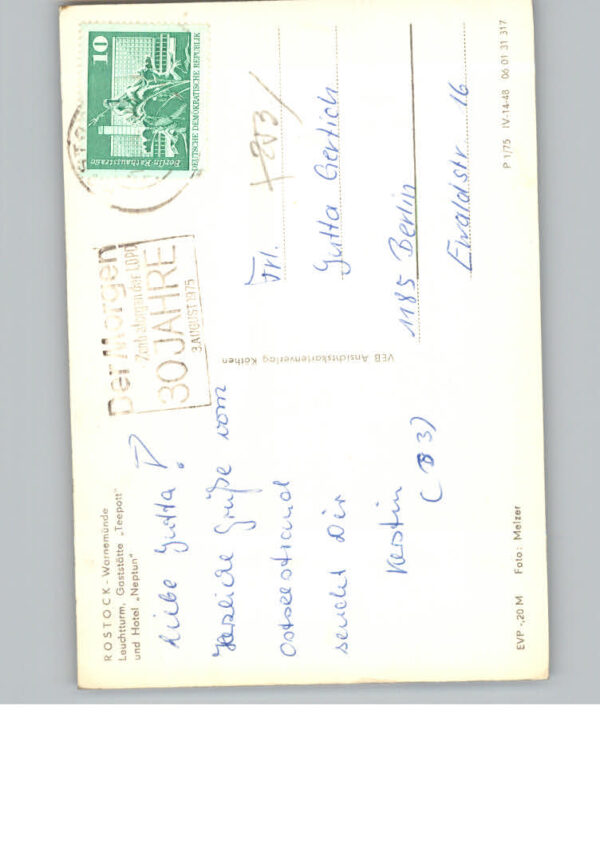 ROSTOCK-Warnemünde
Leuchtturm, Gaststätte „Teepott"
und Hotel „Neptun"
Liebe Jutta!
Herzliche Grüße vom
Ostseestrand
sendet Dir
Kerstin
(B3)
EVP -,20 M Foto: Melzer
VEB Ansichtskartenverlag Köthen
Der Morgen
Zentralorgan der LDPD
30 JAHRE
3. AUGUST 1975
10
Berlin Rathausstraße
DEUTSCHE DEMOKRATISCHE REPUBLIK
Frl.
Jutta Gertich
1185 Berlin
Ewaldstr 16
P 1/75 IV-14-48 06 01 31 317